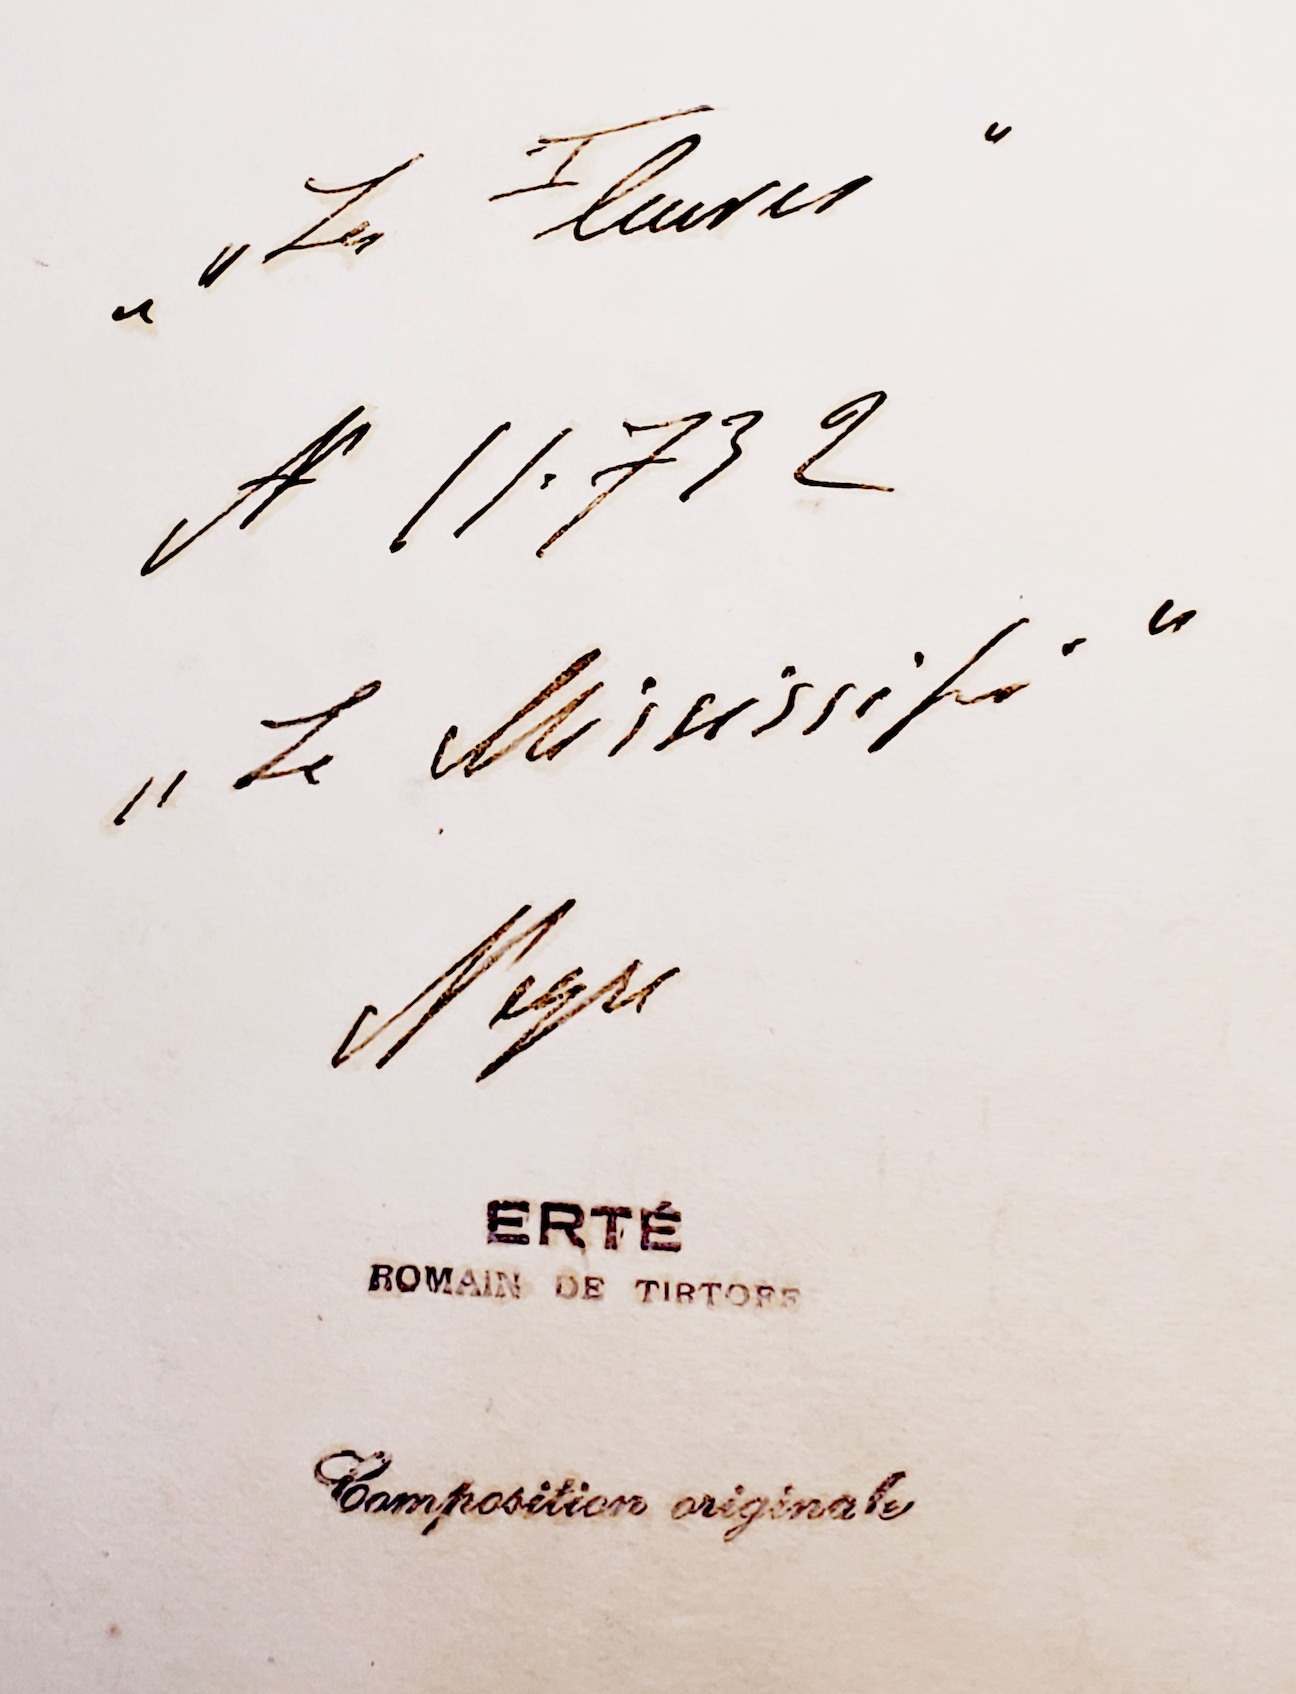 „ "Les Fleuves"
N° 11.732
"Le Mississipi"
Negre
ERTÉ
ROMAIN DE TIRTOFF
Composition originale